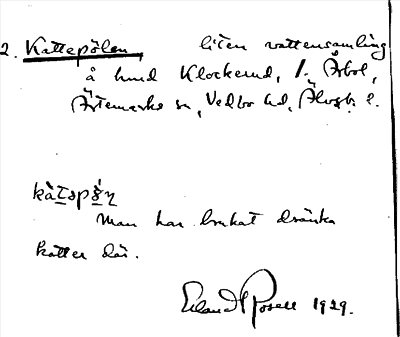 2. Kattepölen, liten vattensamling
å hmd Klockerud, 1. Årbol,
Ärtemarks sn, Vedbo hd, Älvsb. l.
kàtəpø̀ļn
Man har brukat dränka
katter där.
Erland Rosell 1929.